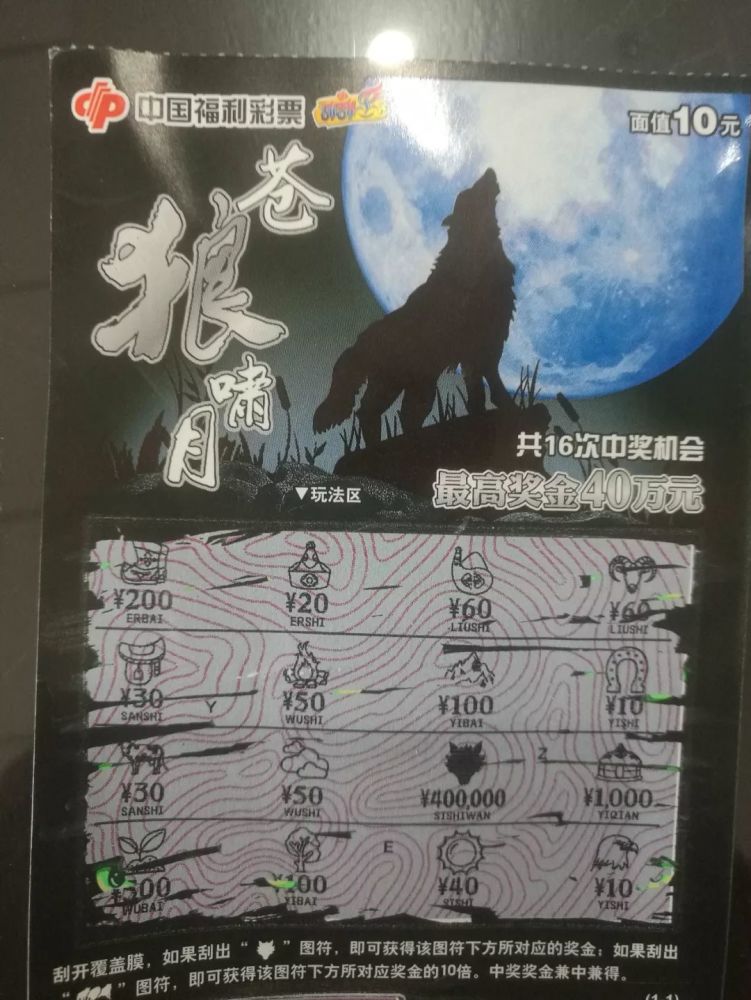 中国福利彩票 刮刮乐
面值10元
苍
狼
啸
月
共16次中奖机会
最高奖金40万元
▼玩法区
¥200 ¥20 ¥60 ¥60
ERBAI ERSHI LIUSHI LIUSHI
¥30 ¥50 ¥100 ¥10
SANSHI Y WUSHI YIBAI YISHI
¥30 ¥50 Z ¥400,000 ¥1,000
SANSHI WUSHI SISHIWAN YIQIAN
E
¥500 ¥100 ¥40 ¥10
WUBAI YIBAI SISHI YISHI
刮开覆盖膜，如果刮出“ ”图符，即可获得该图符下方所对应的奖金；如果刮出
“ ”图符，即可获得该图符下方所对应奖金的10倍。中奖奖金兼中兼得。